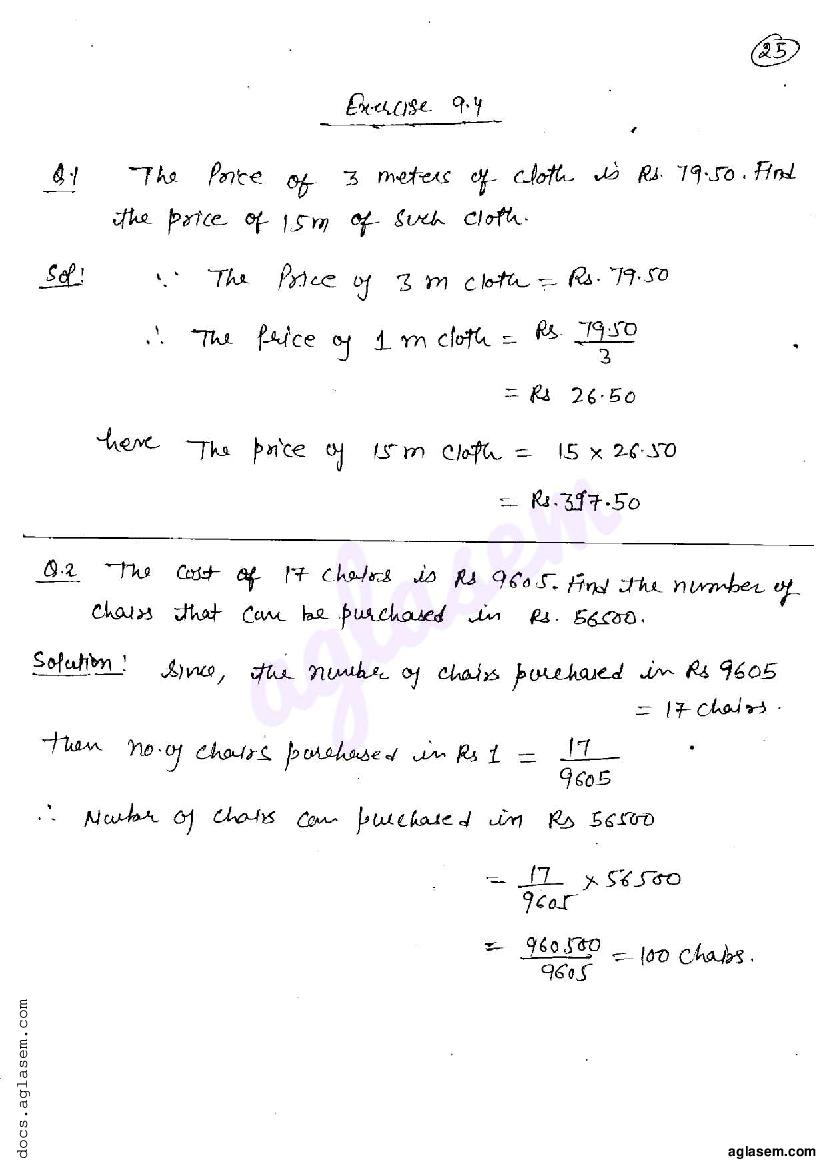 25
Exercise 9.4
Q.1 The Price of 3 meters of cloth is Rs. 79.50. Find
the price of 15m of such cloth.
Sol: ∵ The Price of 3 m cloth = Rs. 79.50
∴ The Price of 1 m cloth = Rs. 79.50/3
= Rs 26.50
here The price of 15m cloth = 15 × 26.50
= Rs. 397.50
Q.2 The cost of 17 chairs is Rs 9605. Find the number of
chairs that can be purchased in Rs. 56500.
Solution: Since, the number of chairs purchased in Rs 9605
= 17 chairs.
Then no. of chairs purchased in Rs 1 = 17/9605
∴ Number of chairs can purchased in Rs 56500
= 17/9605 × 56500
= 960500/9605 = 100 chairs.
aglasem
docs.aglasem.com
aglasem.com